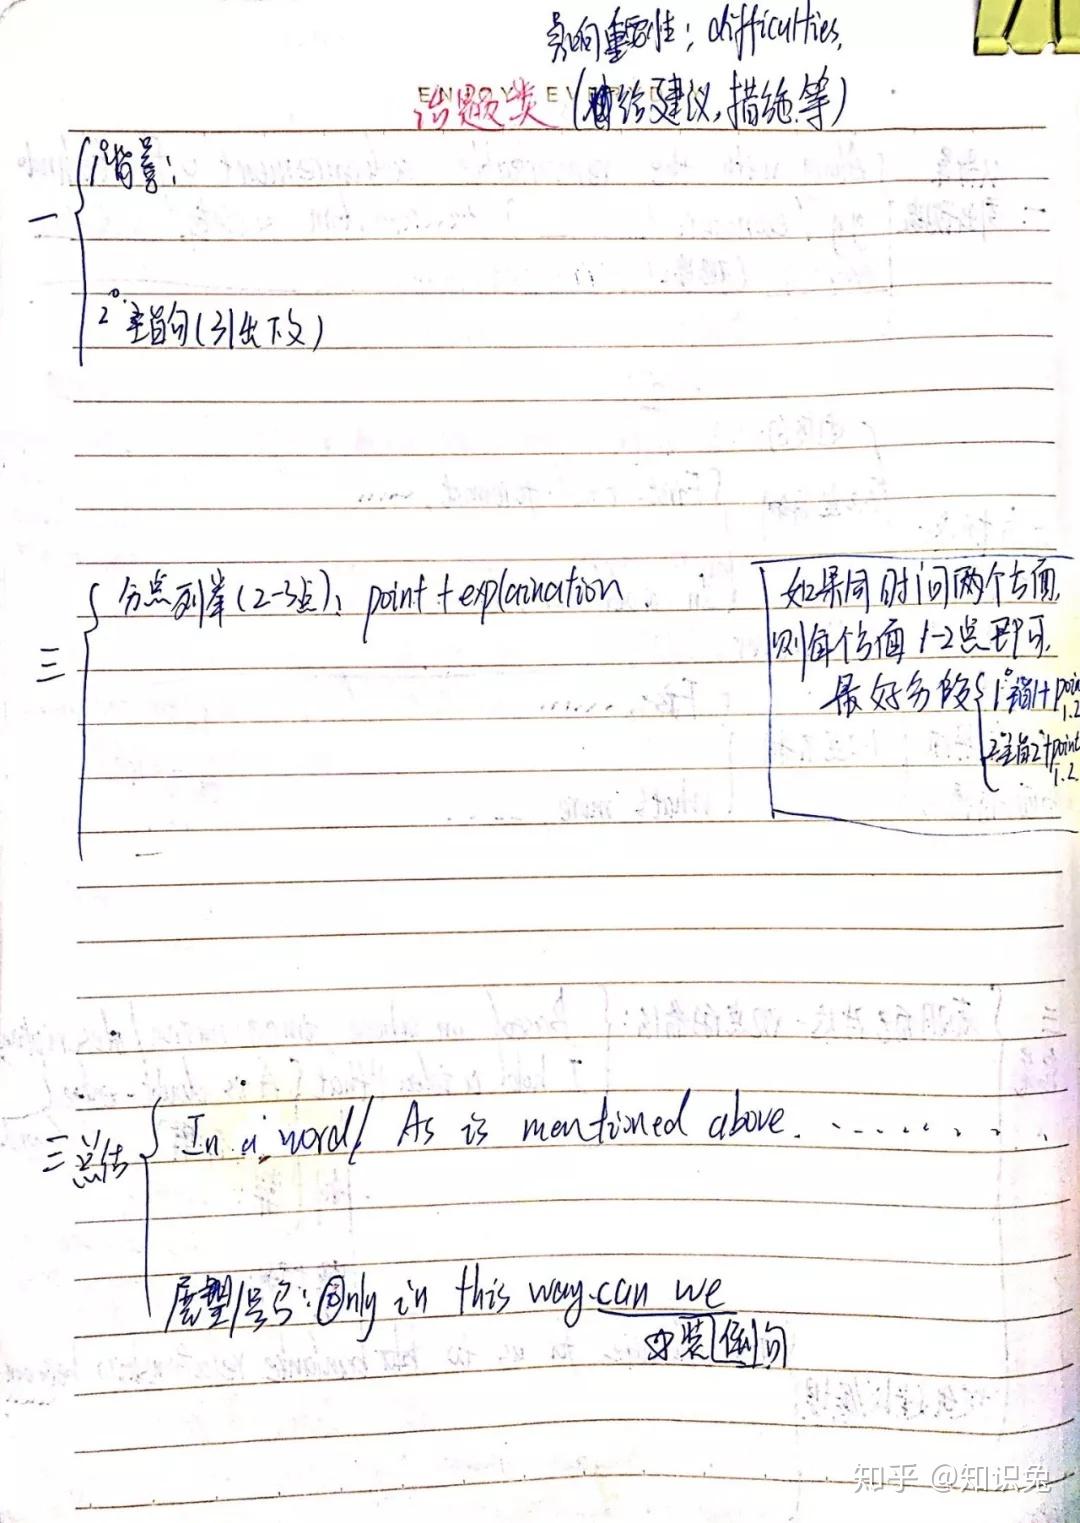 影响重要性；difficulties,
ENJOY EVERY
话题类(给建议,措施等)
一
1°背景:
2°主旨句(引出下文)
三
分点列举(2-3点): point + explaination.
如果同时问两个方面,
则每个方面1-2点即可.
最好分段
1°主旨1+point 1.2
2°主旨2+point 1.2.
三总结
In a word/ As is mentioned above. ........
展望/号召: Only in this way can we
部装 倒句
知乎 @知识兔